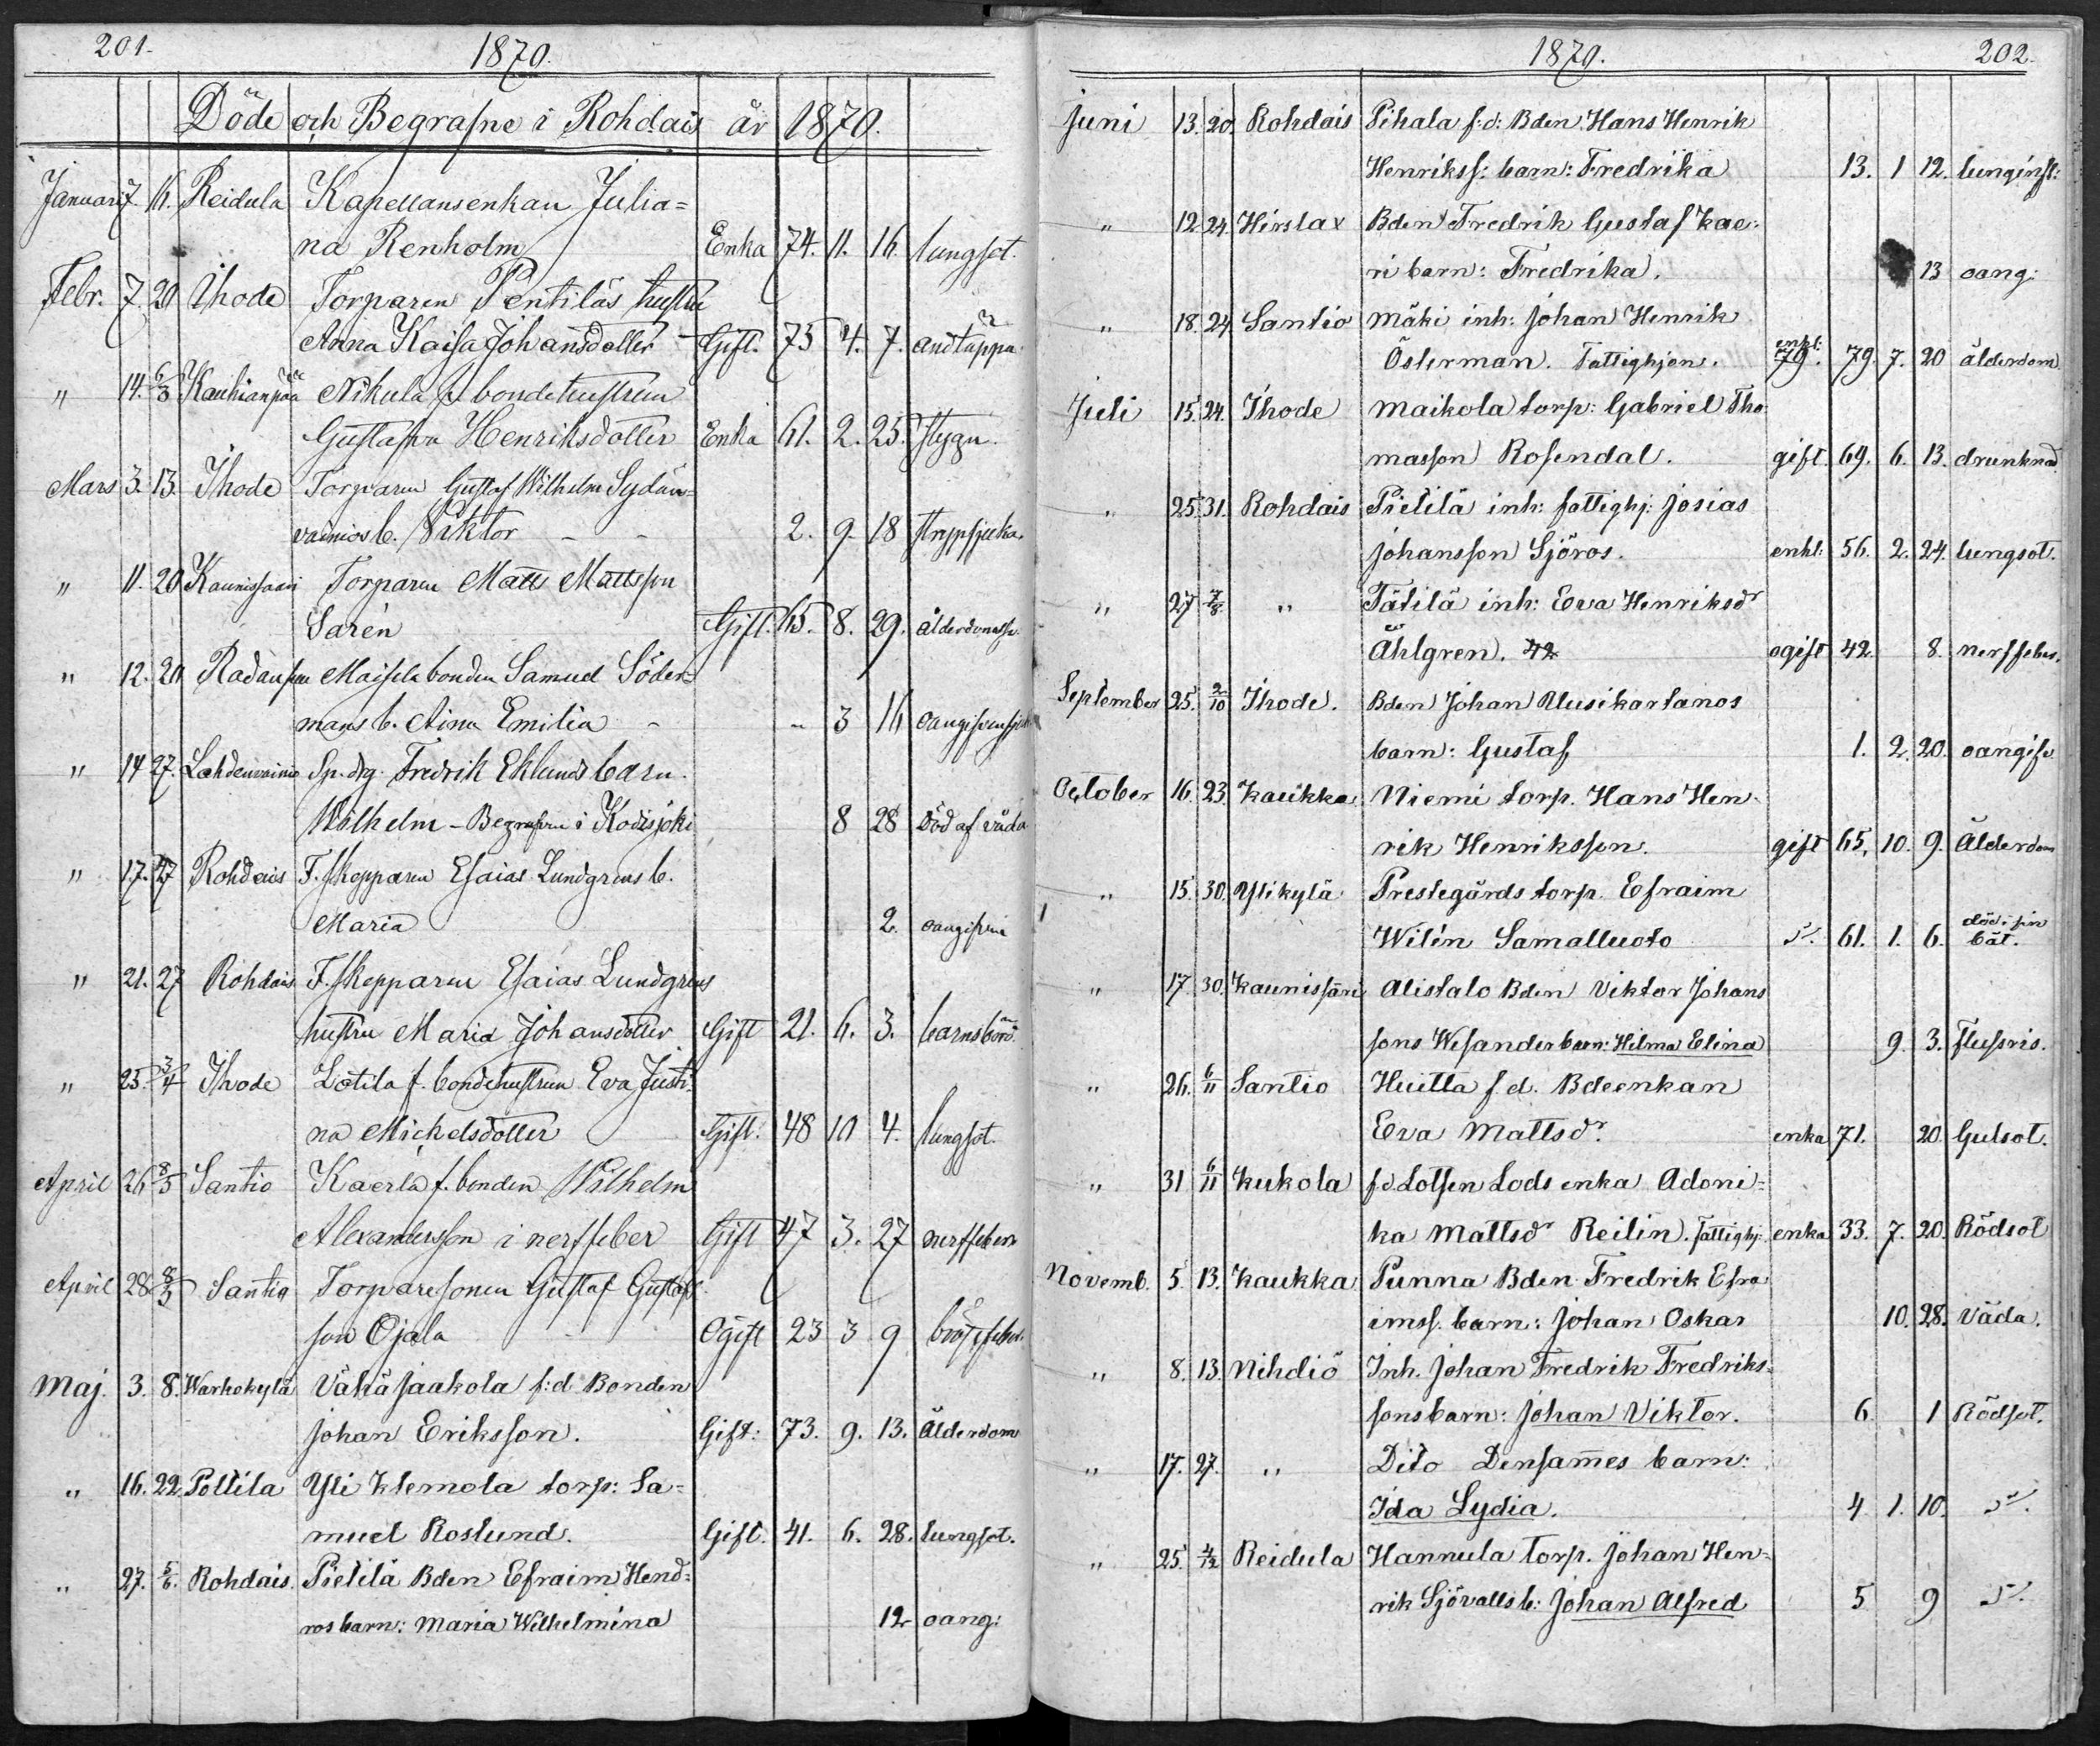 201.
1870.
Döde och Begrafne i Rohdais år 1870.
Januari 7. 16. Reidula Kapellansenkan Julia=
na Renholm Enka 74. 11. 16. lungsot.
Febr. 7. 20 Ihode Torparen Pentiläs hustru
Anna Kaisa Johansdotter Gift. 73 4. 7. andtäppa
" 14. 6/3 Kauhianpää Nikula f. bondehustrun
Gustafva Henriksdotter Enka 61. 2. 25. stygn.
Mars 3. 13. Ihode Torparen Gustaf Wilhelm Sydän=
vainios b. Viktor - - 2. 9. 18 strypsjuka.
" 11. 20 Kaunissaari Torparen Matts Mattsson
Sarén Gift. 65. 8. 29. ålderdomssv.
" 12. 20 Maisela bonden Samuel Söder=
mans b. Aina Emilia - - 3 16
" 14 27. Lahdenvainio Sp. drg. Fredrik Eklunds barn.
Wilhelm - Begrafven i Kodisjoki 8 28 död af våda
" 17. 27 Rohdais F. skepparen Esaias Lundgrens b.
Maria 2. oangifven
" 21. 27 Rohdais F. skepparen Esaias Lundgrens
hustru Maria Johansdotter Gift 21. 6. 3. barnsbörd
" 25. 3/4 Ihode Lötila f. bondehustrun Eva Justi=
na Michelsdotter Gift. 48 10 4. lungsot.
April 26 8/5 Santio Kaerla f. bonden Wilhelm
Alexandersson i nerffeber Gift 47 3. 27 nerffeber
April 28 8/5 Santio Torparesonen Gustaf Gustafs
son Ojala Ogift 23 3 9 bröstfeber.
Maj. 3. 8. Warhokylä Vähä Jaakola f:d Bonden
Johan Eriksson. Gift: 73. 9. 13. Ålderdom
" 16. 22. Polttila Yli Klemola torp: Sa=
muel Roslund. Gift. 41. 6. 28. lungsot.
" 27. 5/6. Rohdais. Pietilä Bden Efraim Hend=
ros barn: Maria Wilhelmina 12 oang:
1870.
202.
Juni 13. 20. Rohdais Pihala f:d: Bden Hans Henrik
Henrikss: barn: Fredrika 13. 1 12. lunginfl:
" 12 24. Hirslax Bden Fredrik Gustaf Kae:
ri barn: Fredrika. 13 oang:
" 18. 24 Santio Mäki inh: Johan Henrik
Österman. Fattighjon. enkl: 79. 79. 7. 20 ålderdom
Juli 15. 24. Ihode Maikola torp: Gabriel Tho
masson Rosendal. gift. 69. 6. 13. drunknad
" 25. 31. Rohdais Pietilä inh: fattighj: Josias
Johansson Sjöros. enkl: 56. 2. 24. lungsot.
" 27 7/8. " Tätilä inh: Eva Henriksdr
Åhlgren. 42 ogift 42. 8. nerffeber.
September 25. 2/10 Ihode. Bden Johan Uusikartanos
barn: Gustaf 1. 2. 20. oangifv
October 16. 23 Kaukka Niemi torp. Hans Hen-
rik Henriksson. gift 65, 10. 9. Ålderdom
" 15. 30. Ylikylä Prestegårds torp. Efraim
Wilén Samalluoto 61. 1. 6. död i sin
båt.
" 17 30. Kaunissari Alistalo Bden Viktor Johans
sons Wesander barn: Hilma Elina 9. 3. Flussvis.
" 26. 6/11 Santio Huitta f.d. Bdeenkan
Eva Mattsdr. enka 71. 20. Gulsot.
" 31 6/11 Kukola fd Lotsen Lods enka Adoni=
ka Mattsdr Reilin. Fattighj: enka 33. 7. 20. Rödsot
Novemb. 5. 13. Kaukka Punna Bden Fredrik Efra
imss. barn: Johan Oskar 10. 28. Våda.
" 8. 13. Nihdiö Inh. Johan Fredrik Fredriks=
sons barn: Johan Viktor. 6. 1 Rödsot.
" 17. 27. " Dito Densammes barn:
Ida Lydia. 4. 1. 10.
" 25. 4/12 Reidula Hannula torp. Johan Hen=
rik Sjövalls b: Johan Alfred 5 9